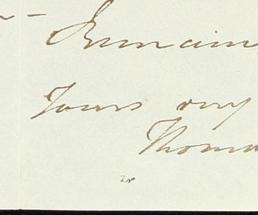 I remain
Yours very
Thoma